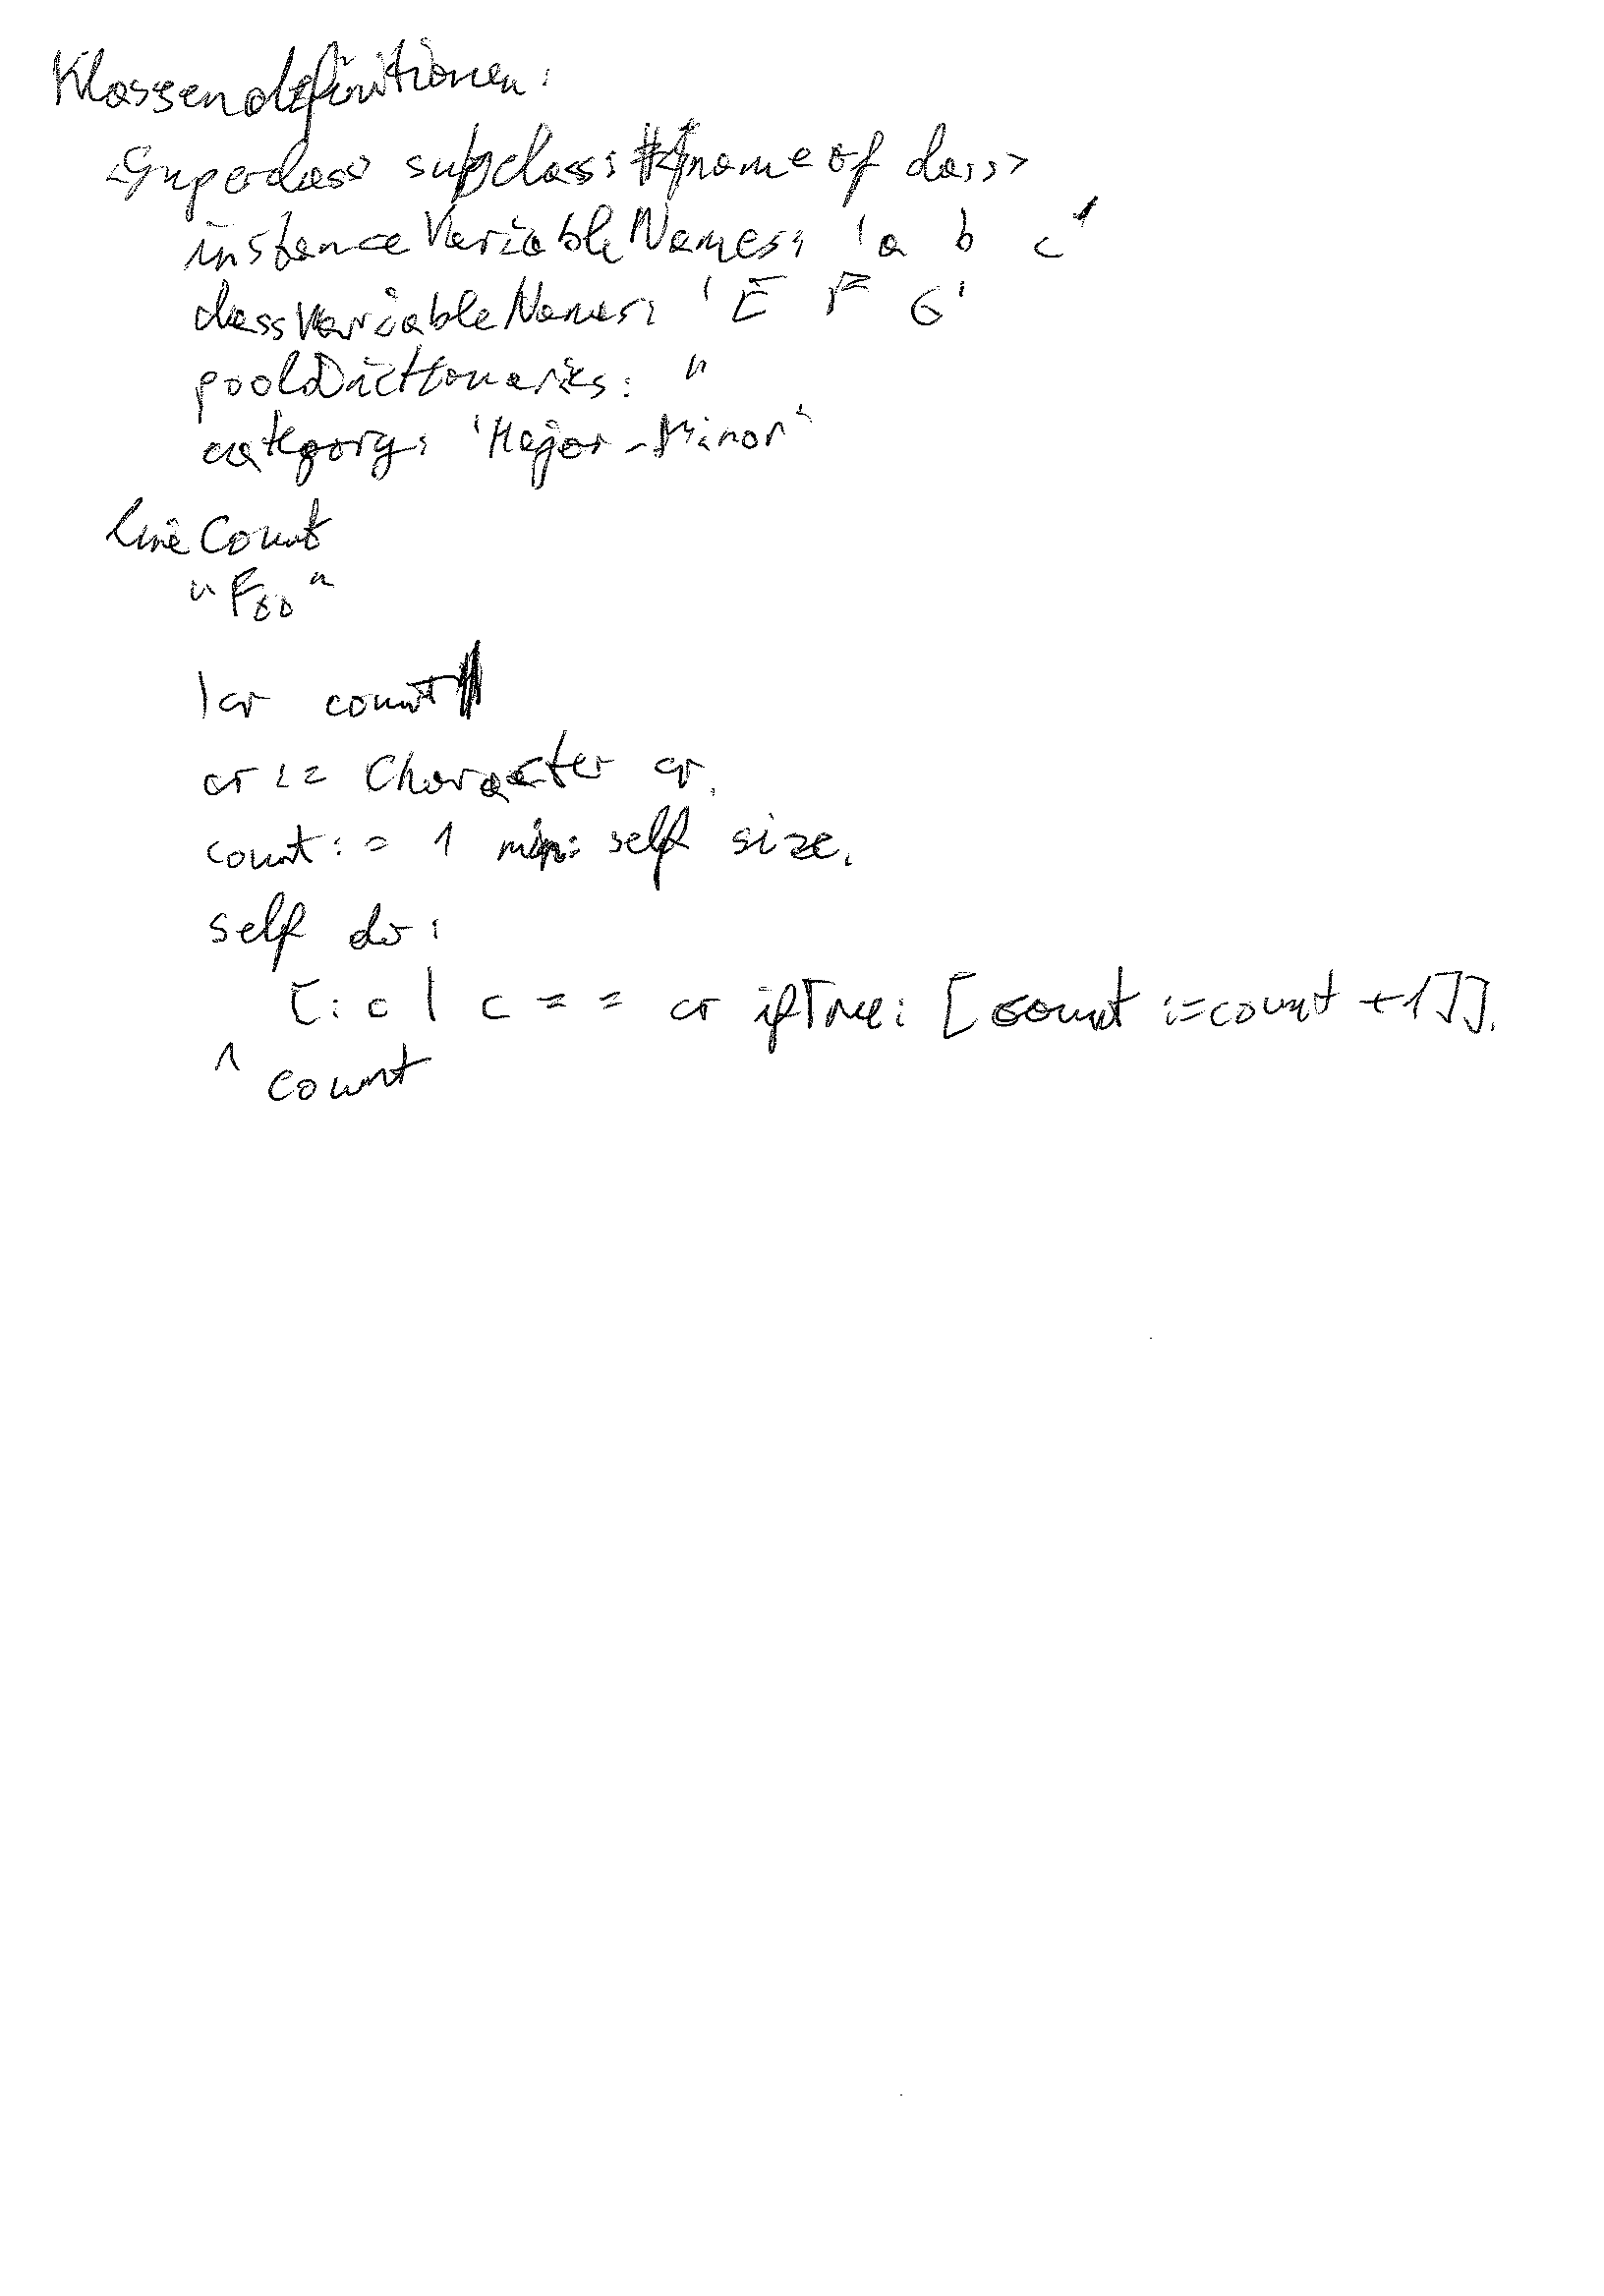 Klassendefinitionen:
<Superclass> subclass: #<name of class>
instanceVariableNames: 'a b c'
classVariableNames: 'E F G'
poolDictionaries: ''
category: 'Major-Minor'
lineCount
"Foo"
|cr count|
cr := Character cr.
count := 1 min: self size.
self do:
[:c | c == cr ifTrue: [count := count +1]].
^ count